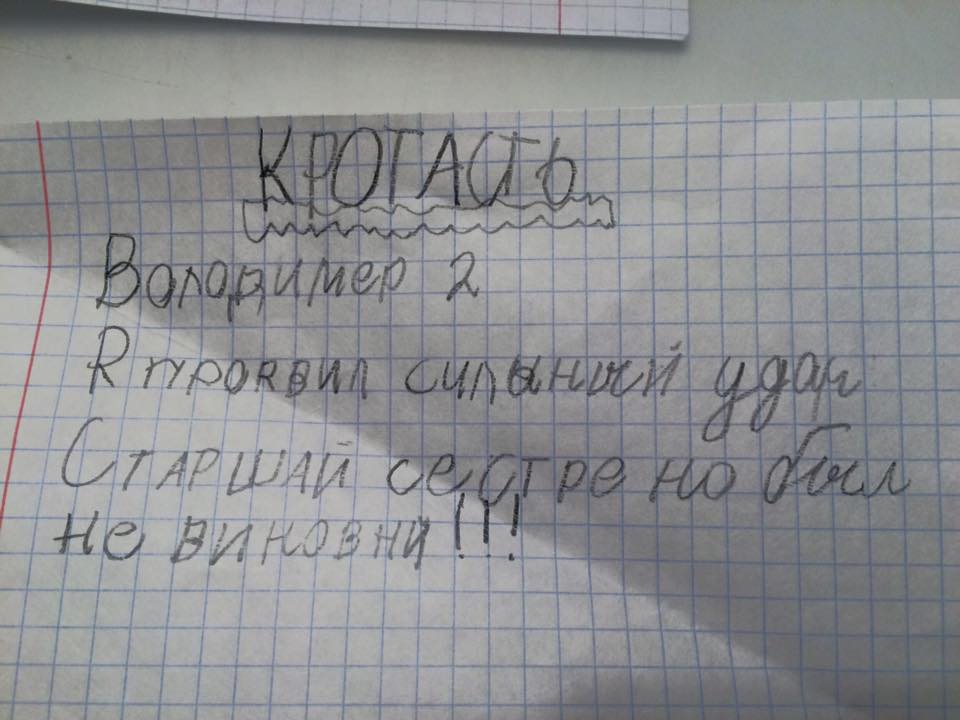 КРОТАСТЬ
Володимер 2
Я проявил сильный удар
Старшай сестре но был
не виновны!!!